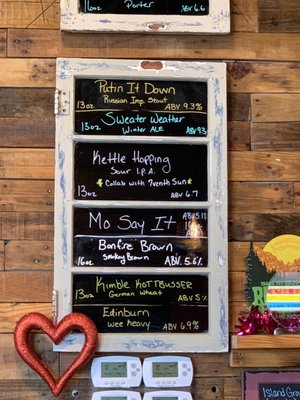 16oz Porter ABV 6.6
Putin It Down
13oz Russian Imp. Stout ABV 9.3%
Sweater Weather
13oz Winter ALE ABV 9.3
Kettle Hopping
Sour I.P.A.
Collab with 7venth Sun
13oz ABV 6.7
Mo Say It ABV 5.1%
Bonfire Brown
16oz Smokey Brown ABV. 5.6%
Kimble KOTTBUSSER
13oz German Wheat ABV 5.1
Edinburn
wee heavy ABV 6.9%
Island Gra